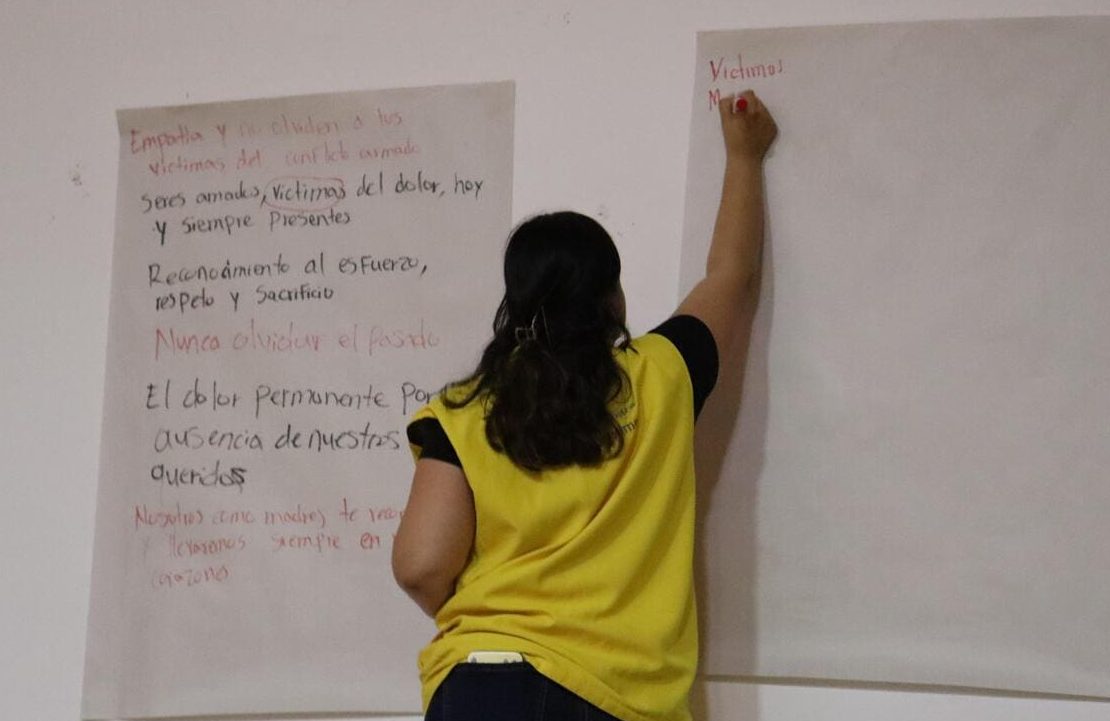 Empatia y no olviden a tus
victimas del conflicto armado
seres amados, victimas del dolor, hoy
y siempre presentes
Reconocimiento al esfuerzo,
respeto y sacrificio
Nunca olvidar el pasado
El dolor permanente por
ausencia de nuestros
queridos
Nosotros como madres te
y llevaremos siempre en
corazones
Victimas
M